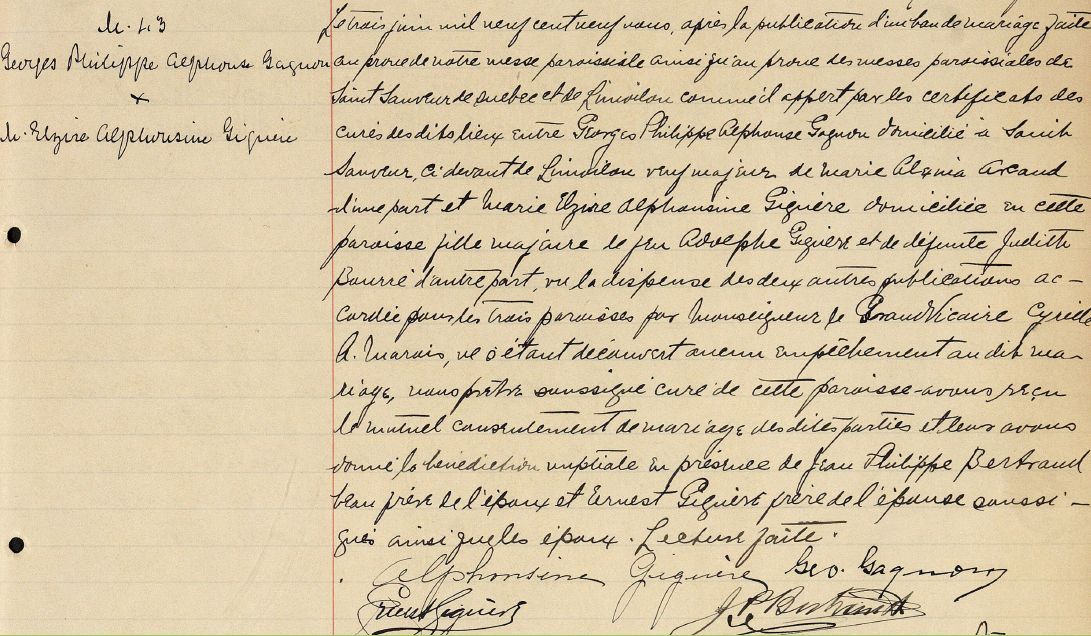 M. 43
Georges Philippe Alphonse Gagnon
x
M. Elzire Alphonsine Giguère
Le trois juin mil neuf cent neuf nous, après la publication d'un ban de mariage faite
au prone de notre messe paroissiale ainsi qu'au prone des messes paroissiales de
Saint Sauveur de Quebec et de Limoilou comme il appert par les certificats des
curés des dits lieux entre Georges Philippe Alphonse Gagnon domicilié à Saint
Sauveur, ci-devant de Limoilou veuf majeur de Marie Alexina Arcand
d'une part et Marie Elzire Alphonsine Giguère domiciliée en cette
paroisse fille majeure de feu Adolphe Giguère et de défunte Judith
Bourré d'autre part, vu la dispense des deux autres publications ac-
cordée pour les trois paroisses par Monseigneur le Grand Vicaire Cyrille
A. Marois, ne s'étant découvert aucun empêchement au dit ma-
riage, nous prêtre soussigné curé de cette paroisse avons reçu
le mutuel consentement de mariage des dites parties et leur avons
donné la bénédiction nuptiale en présence de Jean Philippe Bertrand
beau frère de l'époux et Ernest Giguère frère de l'épouse soussi-
gnés ainsi que les époux. Lecture faite.
Alphonsine Giguère Geo. Gagnon
Ernest Giguère J. P. Bertrand